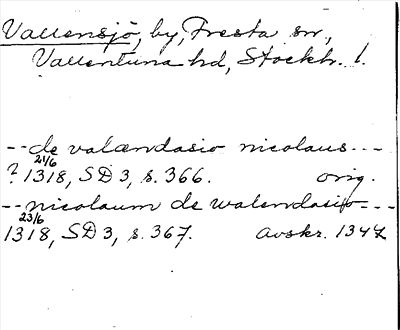 Vallensjö, by, Fresta sn,
Vallentuna hd, Stockh. l.
-- de valændasio nicolaus ---
? 21/6 1318, SD 3, s. 366. orig.
-- nicolaum de walendasio ---
23/6 1318, SD 3, s. 367. avskr. 1344